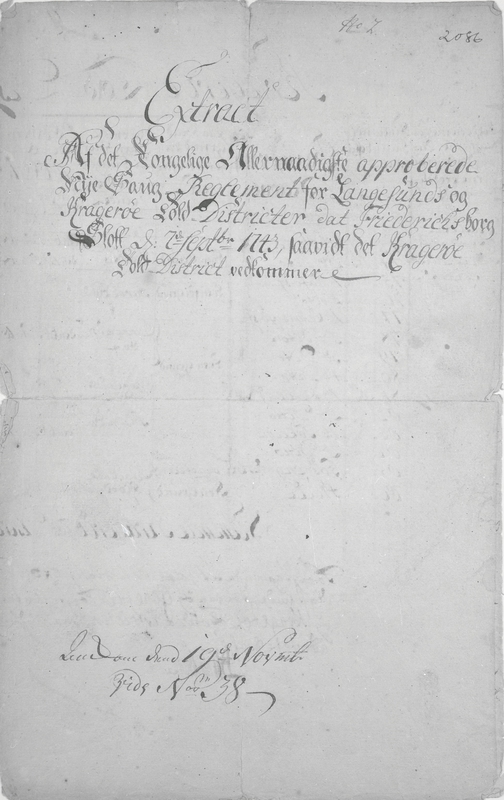 No 7
2086
Extract
Af det Kongelige Allernaadigste approberede
Nye Saug Reglement for Langesunds og
Kragerøe Told Districter dat Friederichsborg
Slott d: 7de Septbr 1743, saavidt det Kragerøe
Told District vedkommer
dend 19de Novmb.
Vide No 38